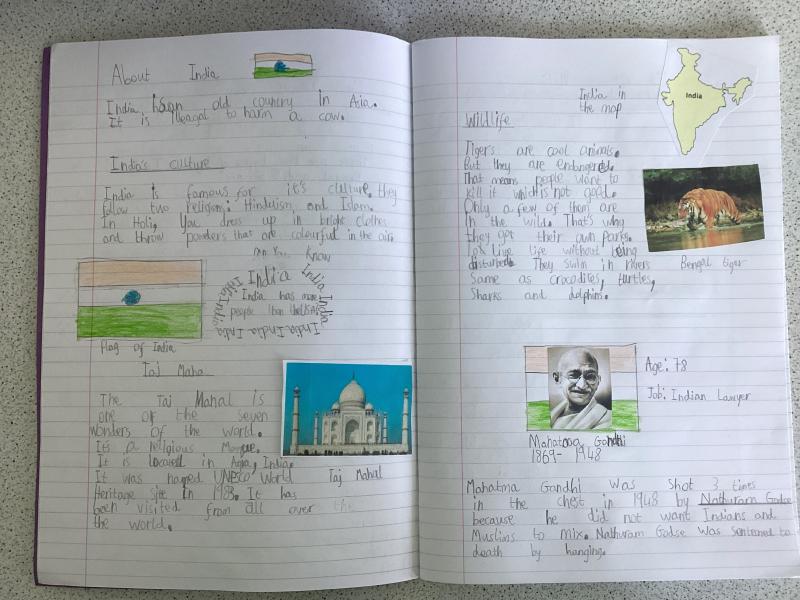 About India
India, is an old country in Asia.
It is illeagal to harm a cow.
India's culture
India is famous for it's culture, they
follow two religions. Hinduism and Islam.
In Holi, You dress up in bright clothes
and throw powders that are colourful in the air.
Know
India India India India India India India India
India has more
people than the USA
Flag of India
Taj Maha
The Taj Mahal is
one of the seven
wonders of the world.
It's a religious Mosque.
It is located in Agra, India.
It was named UNESCO World
Heritage Site in 1983. It has
been visited from all over the
the world.
Taj Mahal
India in
the map
India
Wildlife
Tigers are cool animals.
But they are endangered.
That means people want to
kill it which is not good.
Only a few of them are
in the wild. That's why
they got their own parks.
to live life without being
disturbed. They swim in rivers
same as crocodiles, turtles,
Sharks and dolphins.
Bengal tiger
Age: 78
Job: Indian Lawyer
Mahatma Gandhi
1869 - 1948
Mahatma Gandhi was shot 3 times
in the chest in 1948 by Nathuram Godse
because he did not want Indians and
Muslims to mix. Nathuram Godse was sentenced to
death by hanging.